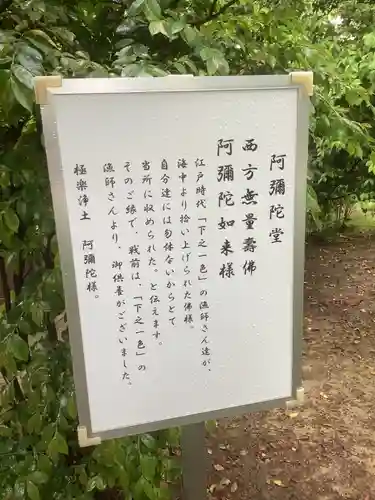 阿彌陀堂
西方無量壽佛
阿彌陀如来様
江戸時代「下之一色」の漁師さん達が、
海中より拾い上げられた佛様。
自分達には勿体ないからとて
当所に収められた。と伝えます。
そのご縁で、戦前は、「下之一色」の
漁師さんより、御供養がございました。
極楽浄土　阿彌陀様。